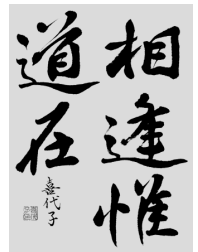 相逢惟
道在
喜代子